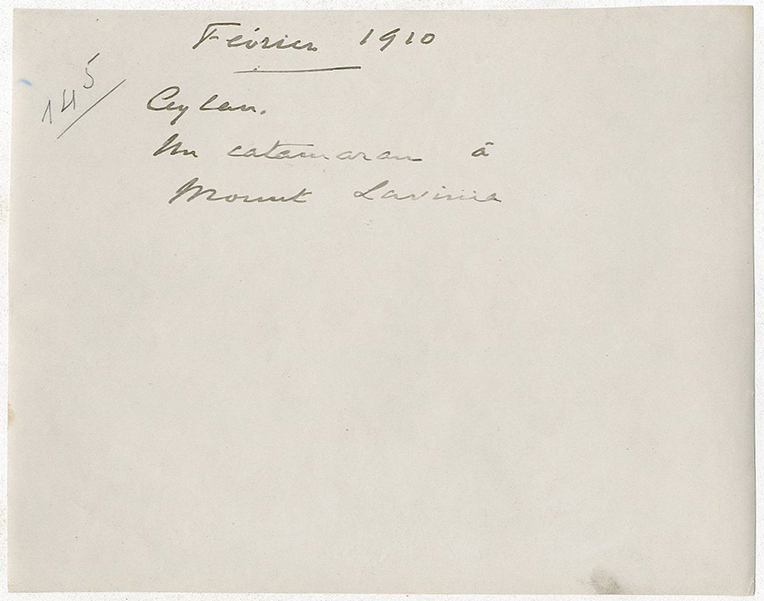 Février 1910
145
Ceylan.
Un catamaran à
Mount Lavinia